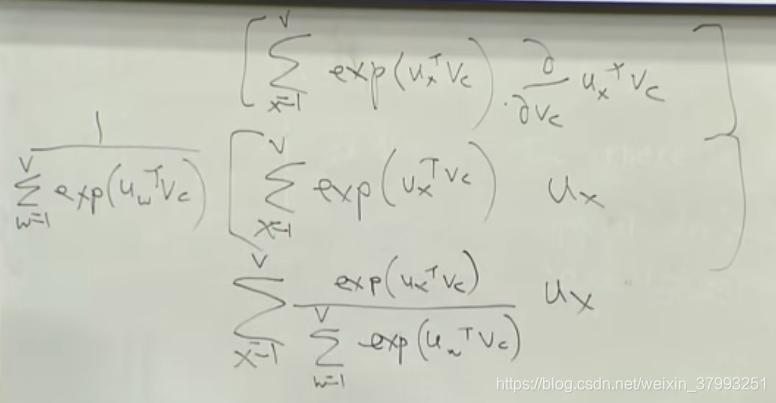 [ \sum_{x=1}^{V} exp(u_x^T v_c) · \frac{∂}{∂v_c} u_x^T v_c ]
\frac{1}{\sum_{w=1}^{V} exp(u_w^T v_c)} [ \sum_{x=1}^{V} exp(u_x^T v_c) u_x ]
\sum_{x=1}^{V} \frac{exp(u_x^T v_c)}{\sum_{w=1}^{V} exp(u_w^T v_c)} u_x
https://blog.csdn.net/weixin_37993251